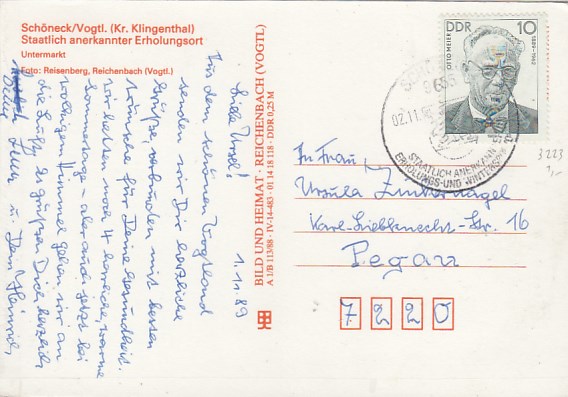 Schöneck/Vogtl. (Kr. Klingenthal)
Staatlich anerkannter Erholungsort
Untermarkt
Foto: Reisenberg, Reichenbach (Vogtl.)
1.11.89
Liebe Ursel!
Aus dem schönen Vogtland
senden wir Dir herzliche
Grüße, verbunden mit besten
Wünschen für Deine Gesundheit.
Wir hatten noch 4 herrliche, warme
Sonnentage – aber auch jetzt bei
wolkigem Himmel gehen wir an
die Luft. Es grüßen Dich herzlich
Deine u. Dein Heiner
BILD UND HEIMAT · REICHENBACH (VOGTL)
A 1/B 113/88 · IV-14-483 · 01 14 18 118 · DDR 0,25 M
DDR 10
OTTO MEIER
1889-1962
02.11.
STAATLICH ANERKANNTER
ERHOLUNGS- UND WINTERSPORTORT
3223
1,-
In Frau
Ursula Zinkernagel
Karl-Liebknecht-Str. 16
Pegau
7220